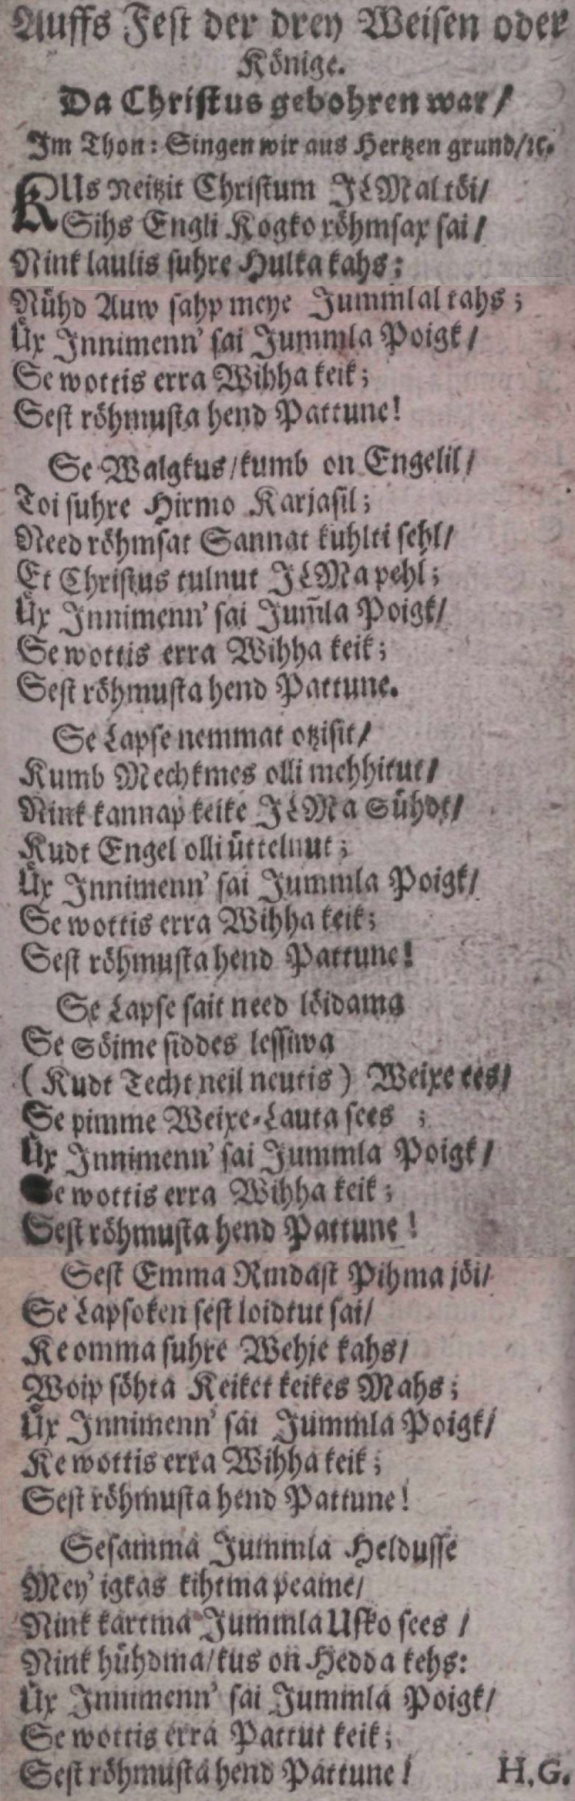 Auffs Fest der drey Weisen oder
Könige.
Da Christus gebohren war/
Im Thon: Singen wir aus Hertzen grund/ꝛc.
KUs Neitzit Christum JLMal töi/
Sihs Engli Kogko röhmsax sai/
Nink laulis suhre Hulka kahs;
Nühd Auw sahp meye Jummlal tahs;
Üx Innimenn' sai Jummla Poigk/
Se wottis erra Wihha keik;
Sest röhmusta hend Pattune!
Se Walgkus/kumb on Engelil/
Toi suhre Hirmo Karjasil;
Need röhmsat Sannat kuhlti sehl/
Et Christus tulnut JLMa pehl;
Üx Innimenn' sai Jum̃la Poigk/
Se wottis erra Wihha keik;
Sest röhmusta hend Pattune.
Se Lapse nemmat otzisit/
Kumb Mechkmes olli mehhitut/
Nink kannap keike JLMa Sühdt/
Kudt Engel olli üttelnut;
Üx Innimenn' sai Jummla Poigk/
Se wottis erra Wihha keik;
Sest röhmusta hend Pattune!
Se Lapse sait need löidama
Se Söime siddes lessiwa
(Kudt Techt neil neutis) Weixe ees/
Se pimme Weixe-Lauta sees ;
Üx Innimenn' sai Jummla Poigk/
Se wottis erra Wihha keik;
Sest röhmusta hend Pattune!
Sest Emma Rindast Pihma jöi/
Se Lapsoken sest loidtut sai/
Ke omma suhre Wehje kahs/
Woip söhta Keiket keikes Mahs;
Üx Innimenn' sai Jummla Poigk/
Ke wottis erra Wihha keik;
Sest röhmusta hend Pattune!
Sesamma Jummla Heldusse
Mey' igkas kihtma peame/
Nink kartma Jummla Usko sees/
Nink hühdma/kus on Hedda kehs:
Üx Innimenn' sai Jummla Poigk/
Se wottis erra Pattut keik;
Sest röhmusta hend Pattune! H.G.